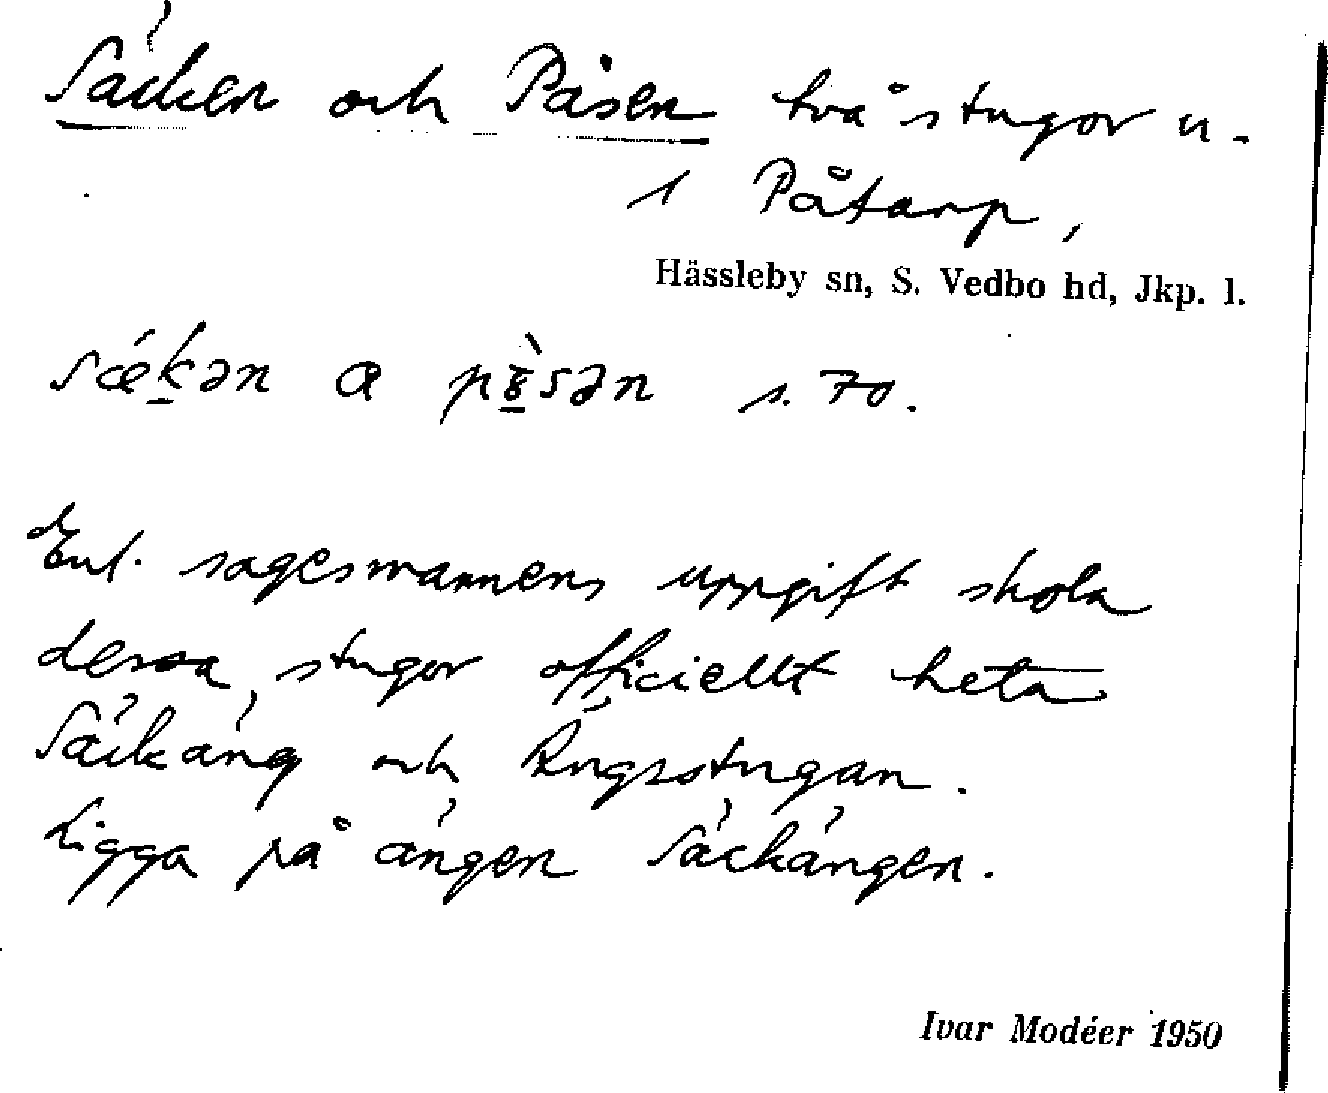 Säcken och Påsen två stugor u.
1 Påtarp,
Hässleby sn, S. Vedbo hd, Jkp. l.
sǽk̠ən a s. 70.
Enl. sagesmannens uppgift skola
dessa stugor officiellt heta
Säckäng och Ängsstugan.
Ligga på ängen Säckängen.
Ivar Modéer 1950